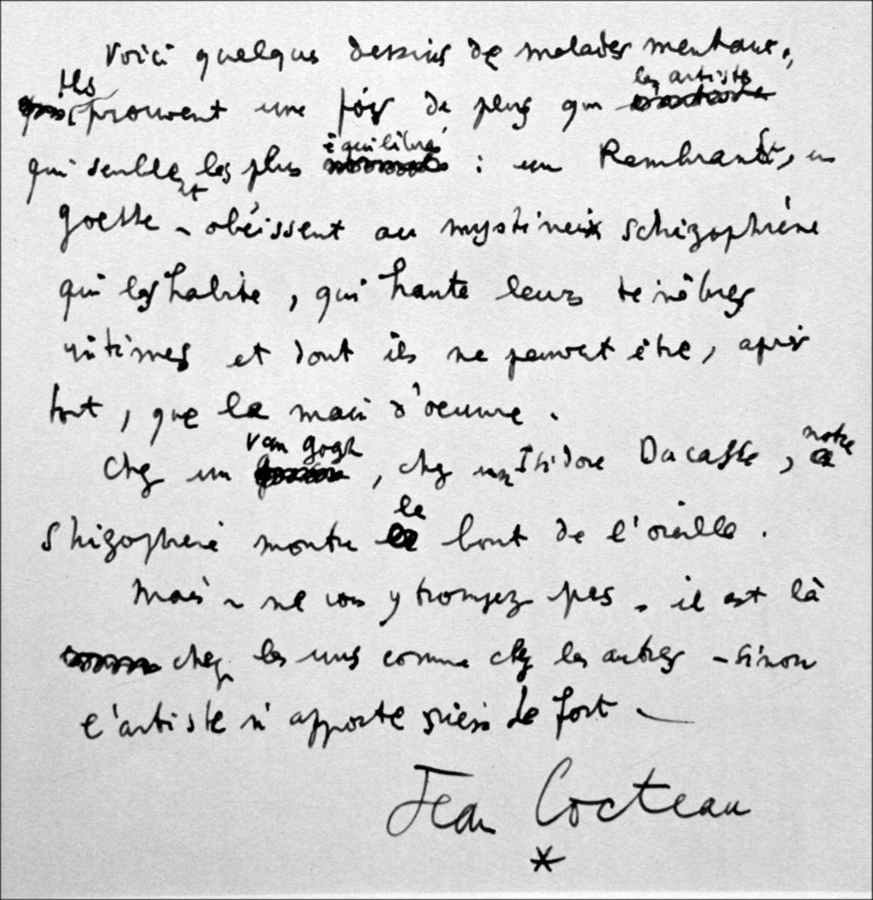 Voici quelques dessins de malades mentaux.
Ils prouvent une fois de plus que les artistes
qui semblent les plus équilibrés : un Rembrandt, un
goethe - obéissent au mystérieux schizophrène
qui les habite, qui hante leurs ténèbres
intimes et dont ils ne peuvent être, après
tout, que la main d'oeuvre.
Chez un Van Gogh, chez un Isidore Ducasse, notre
shizophrène montre le bout de l'oreille.
Mais - ne vous y trompez pas - il est là
chez les uns comme chez les autres - sinon
l'artiste n'apporte rien de fort.
Jean Cocteau
*